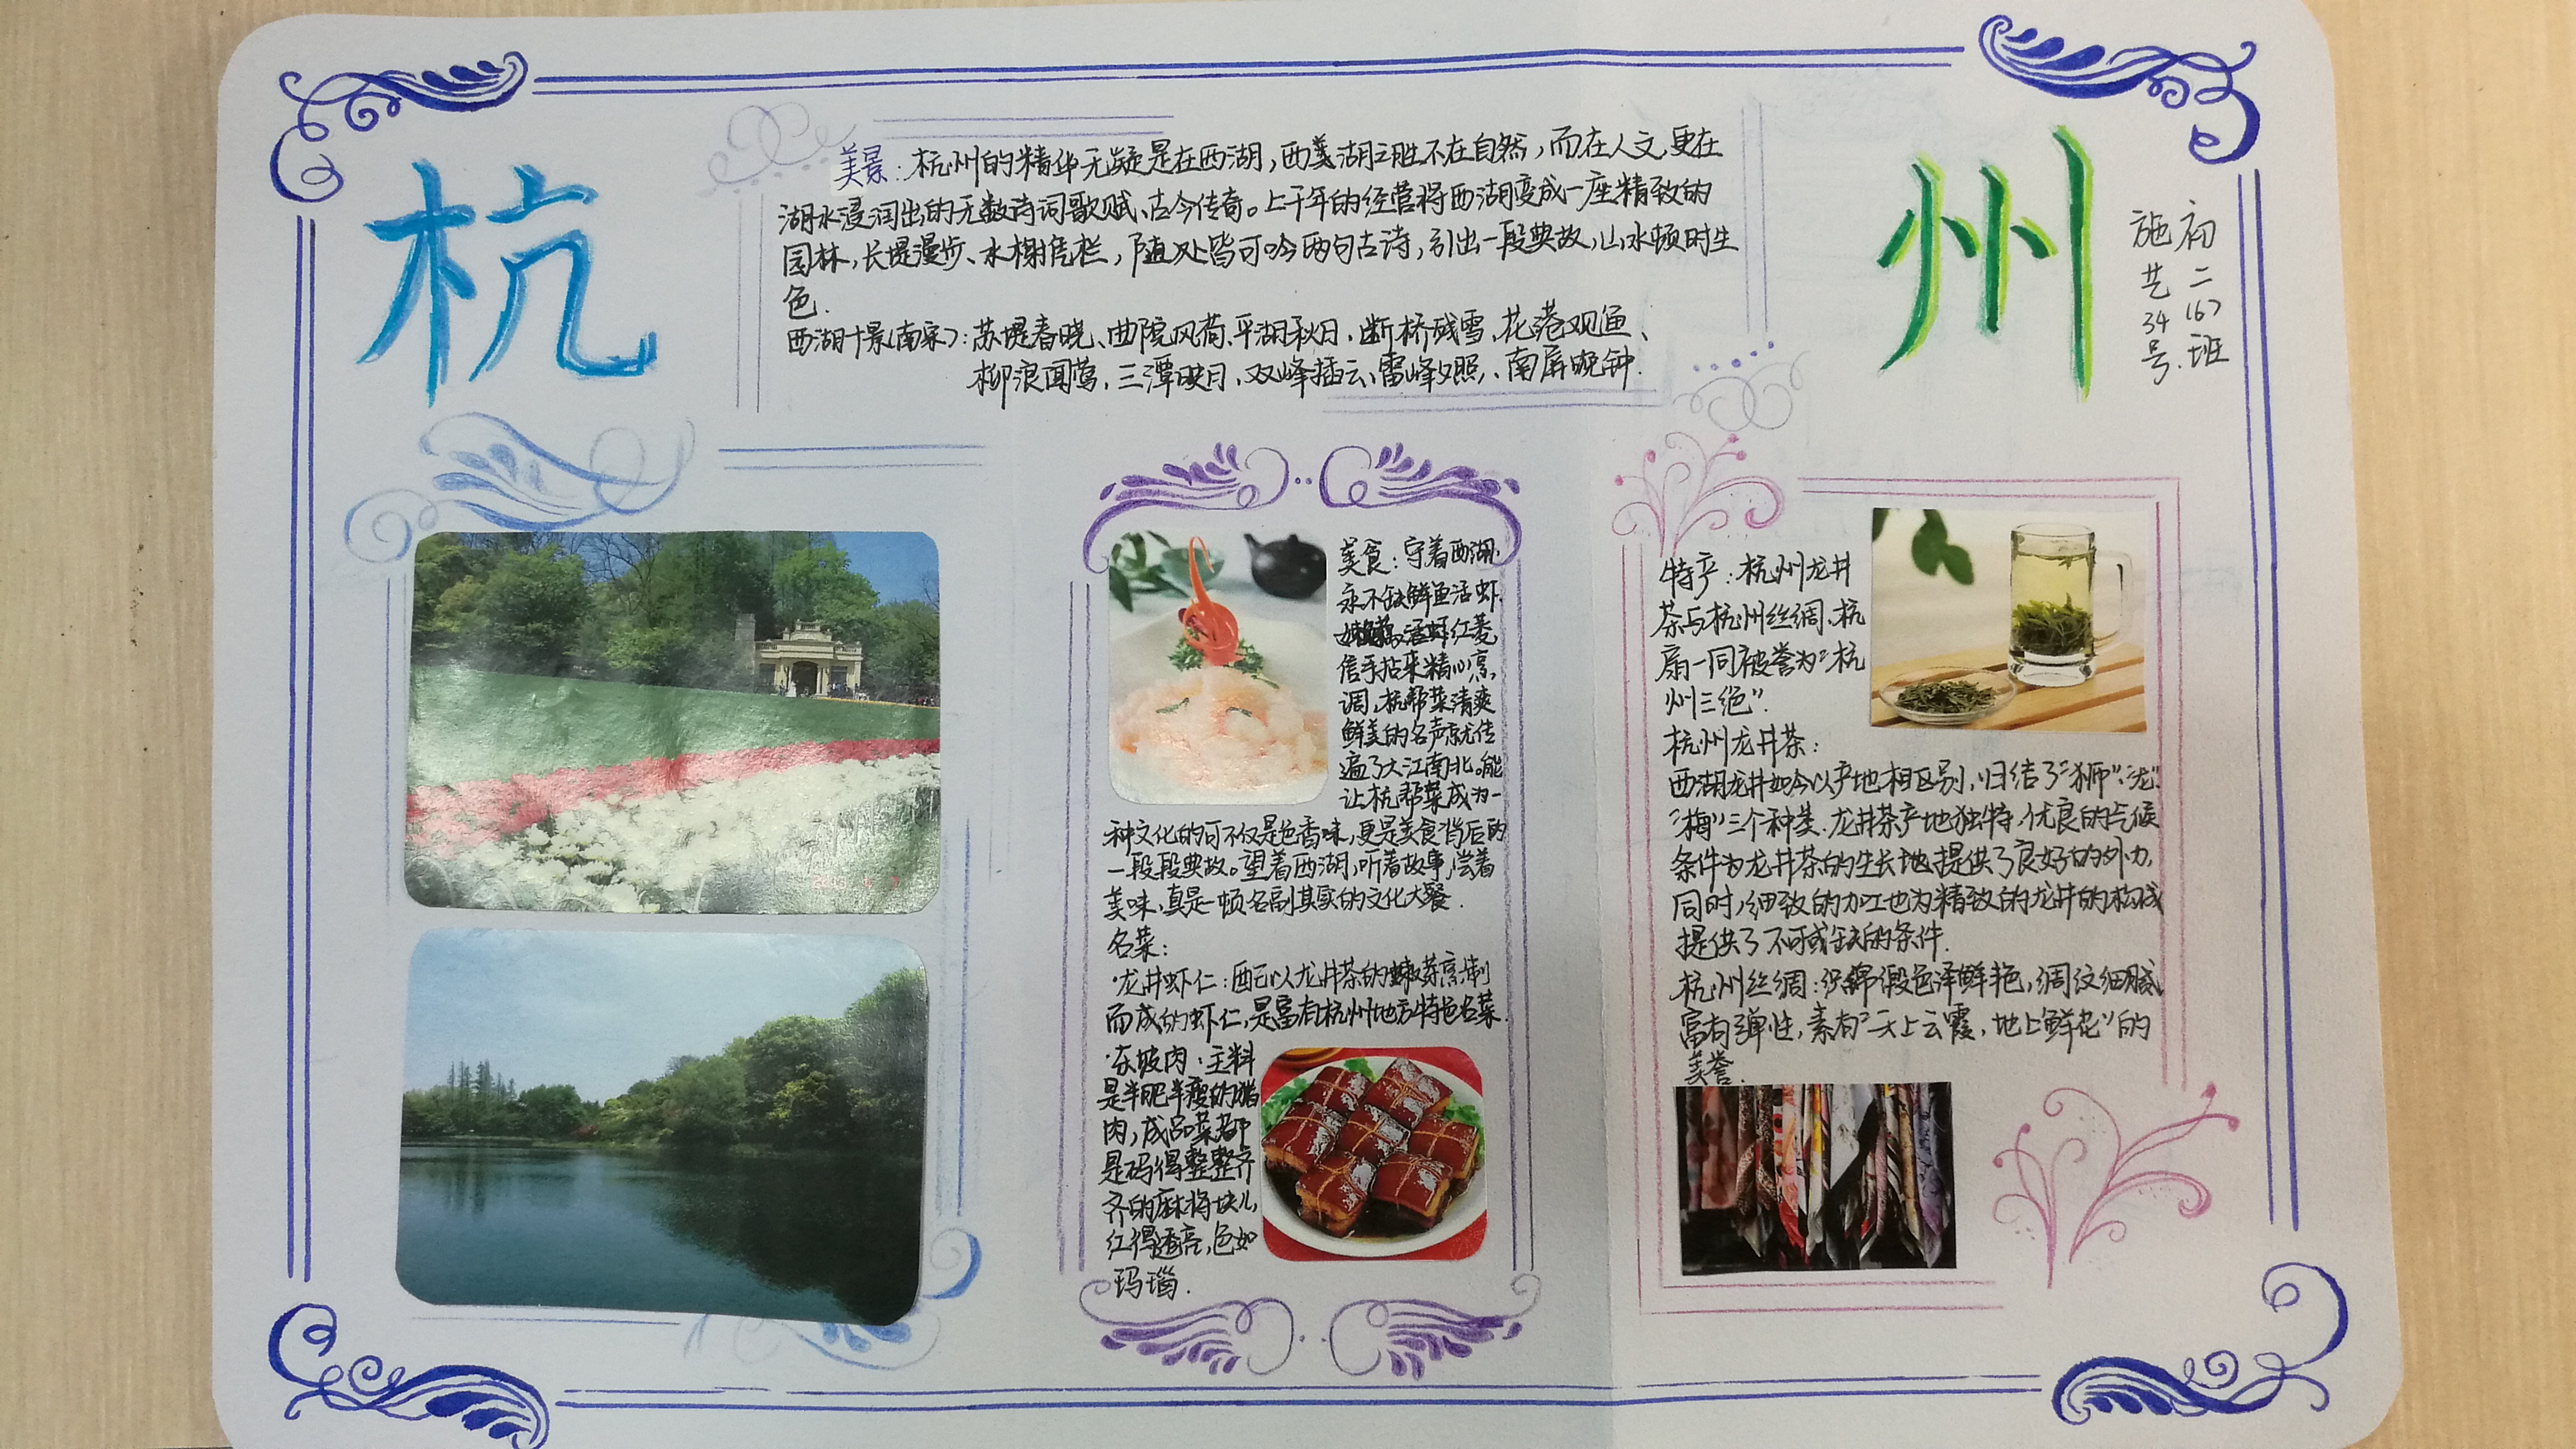 杭
州
初二(6)班
施艺34号.
美景:杭州的精华无疑是在西湖,西湖之胜不在自然,而在人文,更在
湖水浸润出的无数诗词歌赋、古今传奇。上千年的经营将西湖变成一座精致的
园林,长堤漫步、水榭凭栏,随处皆可吟两句古诗,引出一段典故,山水顿时生
色.
西湖十景(南宋):苏堤春晓、曲院风荷、平湖秋月、断桥残雪、花港观鱼、
柳浪闻莺、三潭映月、双峰插云、雷峰夕照、南屏晚钟.
美食:守着西湖,
永不缺鲜鱼活虾.
红菱
信手拈来精心烹
调,杭帮菜清爽
鲜美的名声就传
遍了大江南北。能
让杭帮菜成为一
种文化的可不仅是色香味,更是美食背后的
一段段典故。望着西湖,听着故事,尝着
美味,真是一顿名副其实的文化大餐.
名菜:
·龙井虾仁:配以龙井茶的嫩芽烹制
而成的虾仁,是富有杭州地方特色名菜.
·东坡肉:主料
是半肥半瘦的猪
肉,成品菜都
是码得整整齐
齐的麻将块儿,
红得透亮,色如
玛瑙.
特产:杭州龙井
茶与杭州丝绸、杭
扇一同被誉为"杭
州三绝".
杭州龙井茶:
西湖龙井如今以产地相区别,归结了"狮"、"龙"、
"梅"三个种类.龙井茶产地独特,优良的气候
条件为龙井茶的生长地提供了良好的外力,
同时,细致的加工也为精致的龙井的构成
提供了不可或缺的条件.
杭州丝绸:织锦缎色泽鲜艳,绸纹细腻,
富有弹性,素有"天上云霞,地上鲜花"的
美誉.